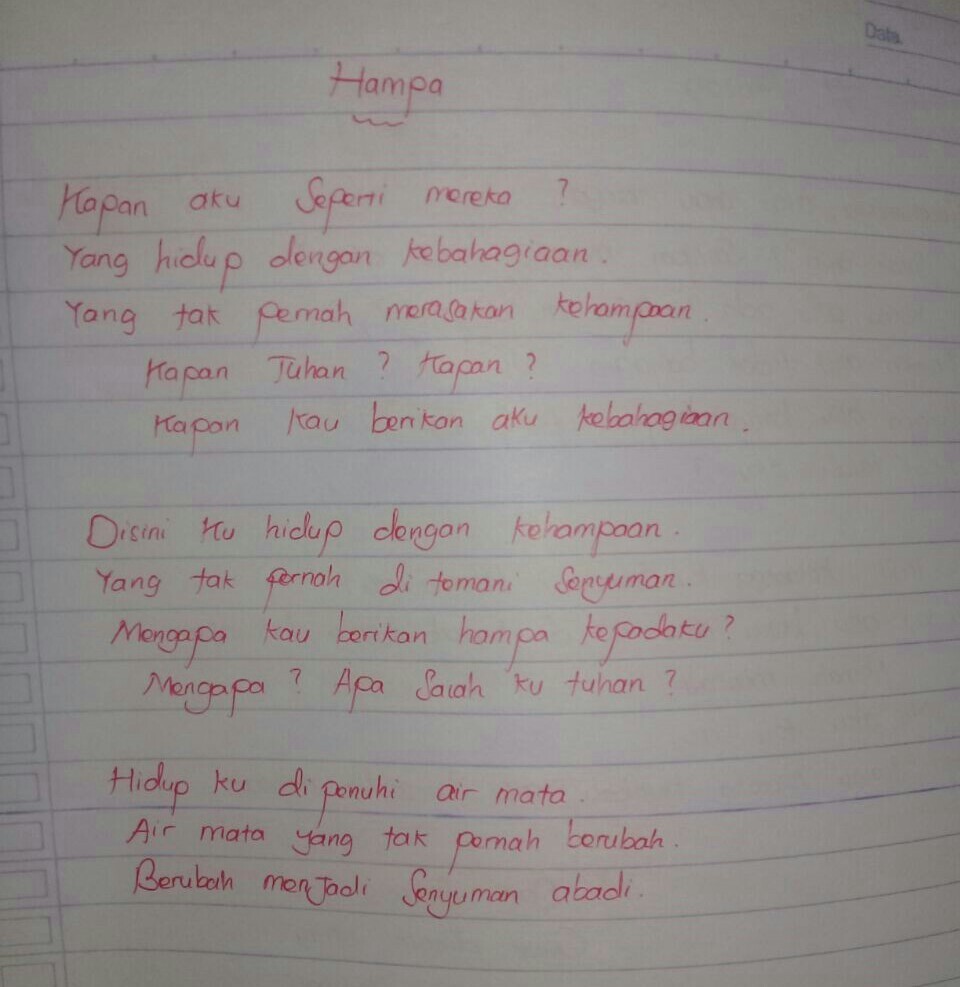 Date.
Hampa
Kapan aku seperti mereka ?
Yang hidup dengan kebahagiaan.
Yang tak pernah merasakan kehampaan.
Kapan Tuhan ? Kapan ?
Kapan kau berikan aku kebahagiaan.
Disini ku hidup dengan kehampaan.
Yang tak pernah di temani senyuman.
Mengapa kau berikan hampa kepadaku ?
Mengapa ? Apa salah ku tuhan ?
Hidup ku di penuhi air mata.
Air mata yang tak pernah berubah.
Berubah menjadi senyuman abadi.